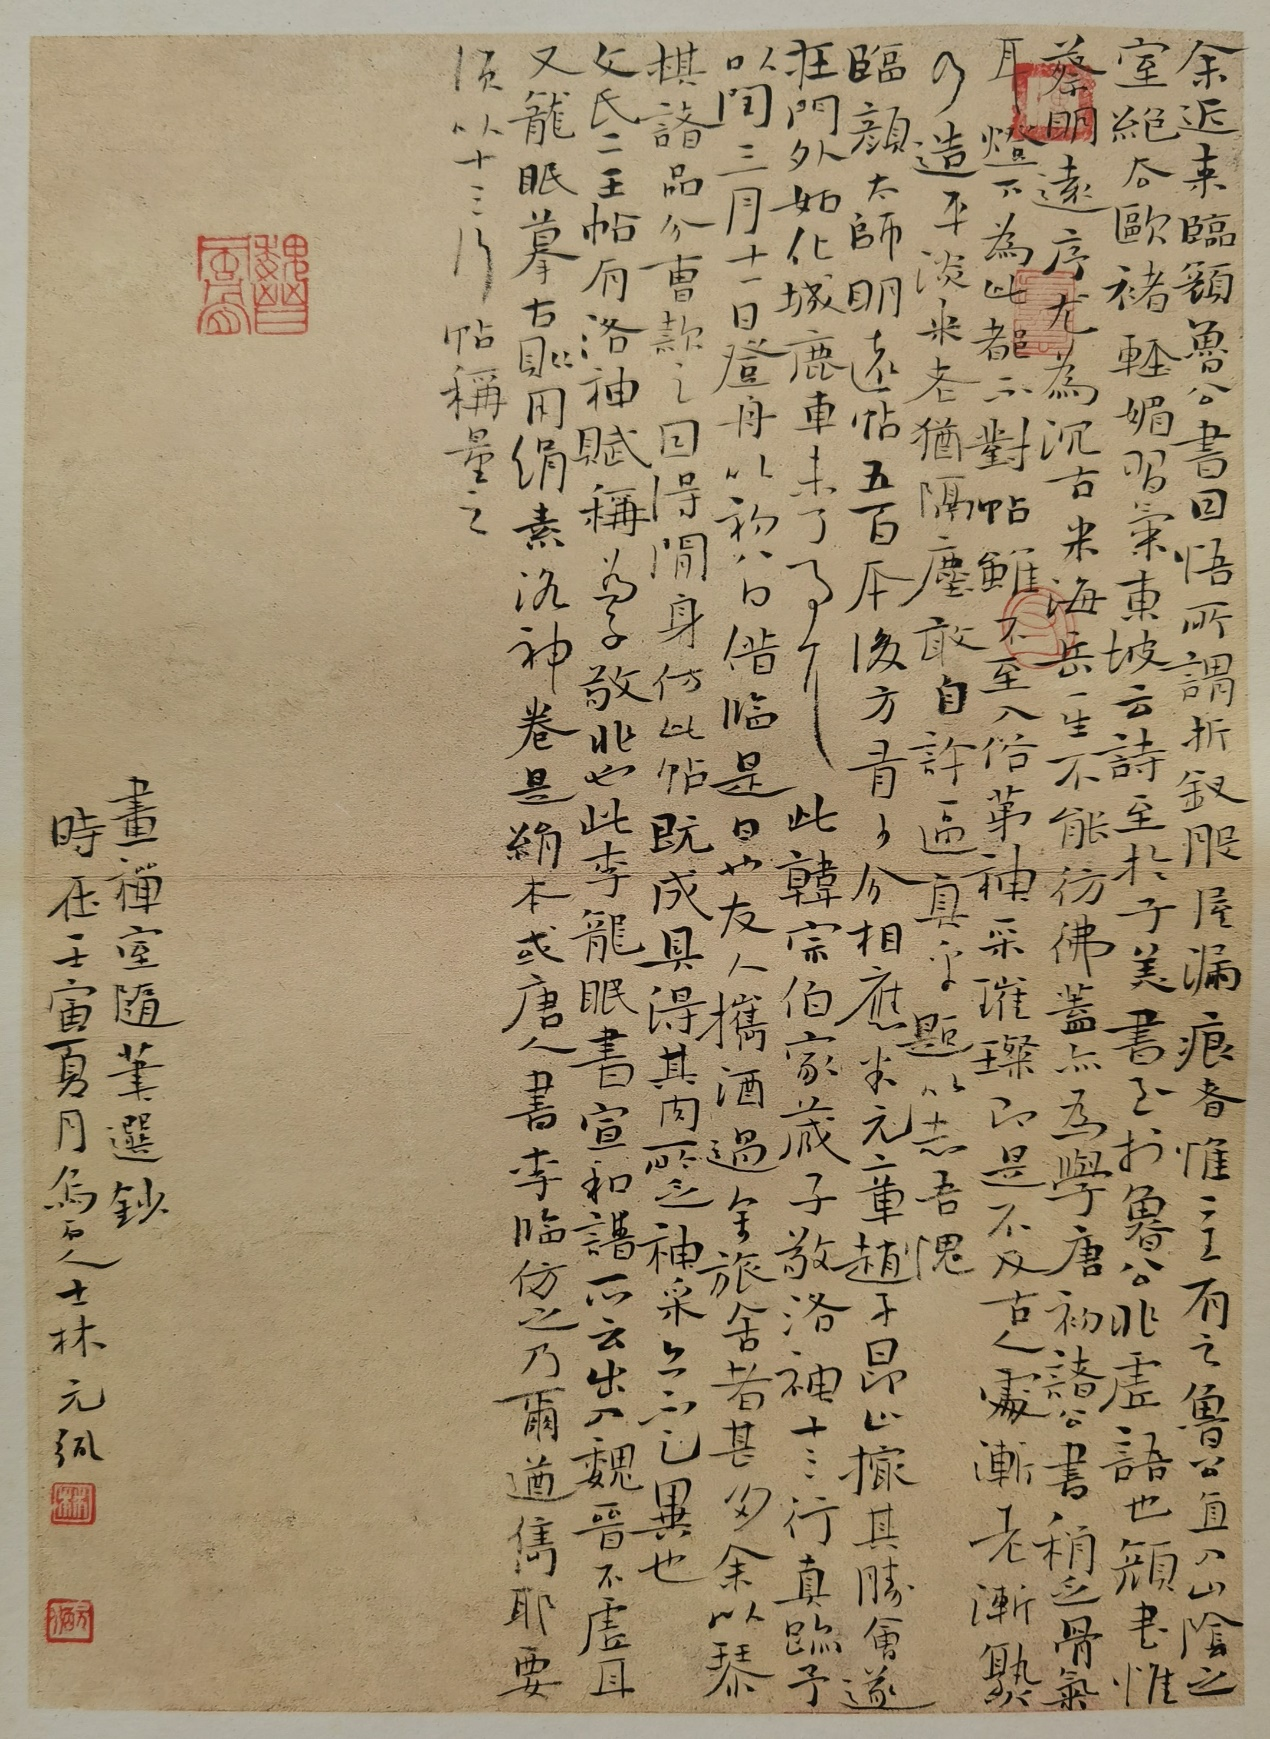 余近來臨顏魯公書因悟所謂折釵股屋漏痕者惟二王有之魯公直入山陰之
室絕去歐褚輕媚習氣東坡云詩至於子美書至於魯公非虛語也顏書惟
蔡明遠序尤為沉古米海岳一生不能彷彿蓋亦為學唐初諸公書稍乏骨氣
耳燈下為此都不對帖雖不至入俗第神采璀璨即是不及古人處漸老漸熟
乃造平淡米老猶隔塵敢自許逼真乎題以志吾愧
臨顏太師明遠帖五百本後方有少分相應米元章趙子昂止撮其勝會遂
在門外如化城鹿車未了事 此韓宗伯家藏子敬洛神十三行真跡予
以閏三月十一日登舟以初八日借臨是日也友人攜酒過余旅舍者甚多余以琴
棋諸品分曹款之因得閒身仿此帖既成具得其肉所乏神采亦不足異也
文氏二王帖有洛神賦稱為子敬非也此李龍眠書宣和譜所云出入魏晉不虛耳
又龍眠摹古則用絹素洛神卷是絹本或唐人書李臨仿之乃爾遒雋耶要
須以十三行帖稱量之
畫禪室隨筆選鈔
時在壬寅夏月烏石人士林元珮